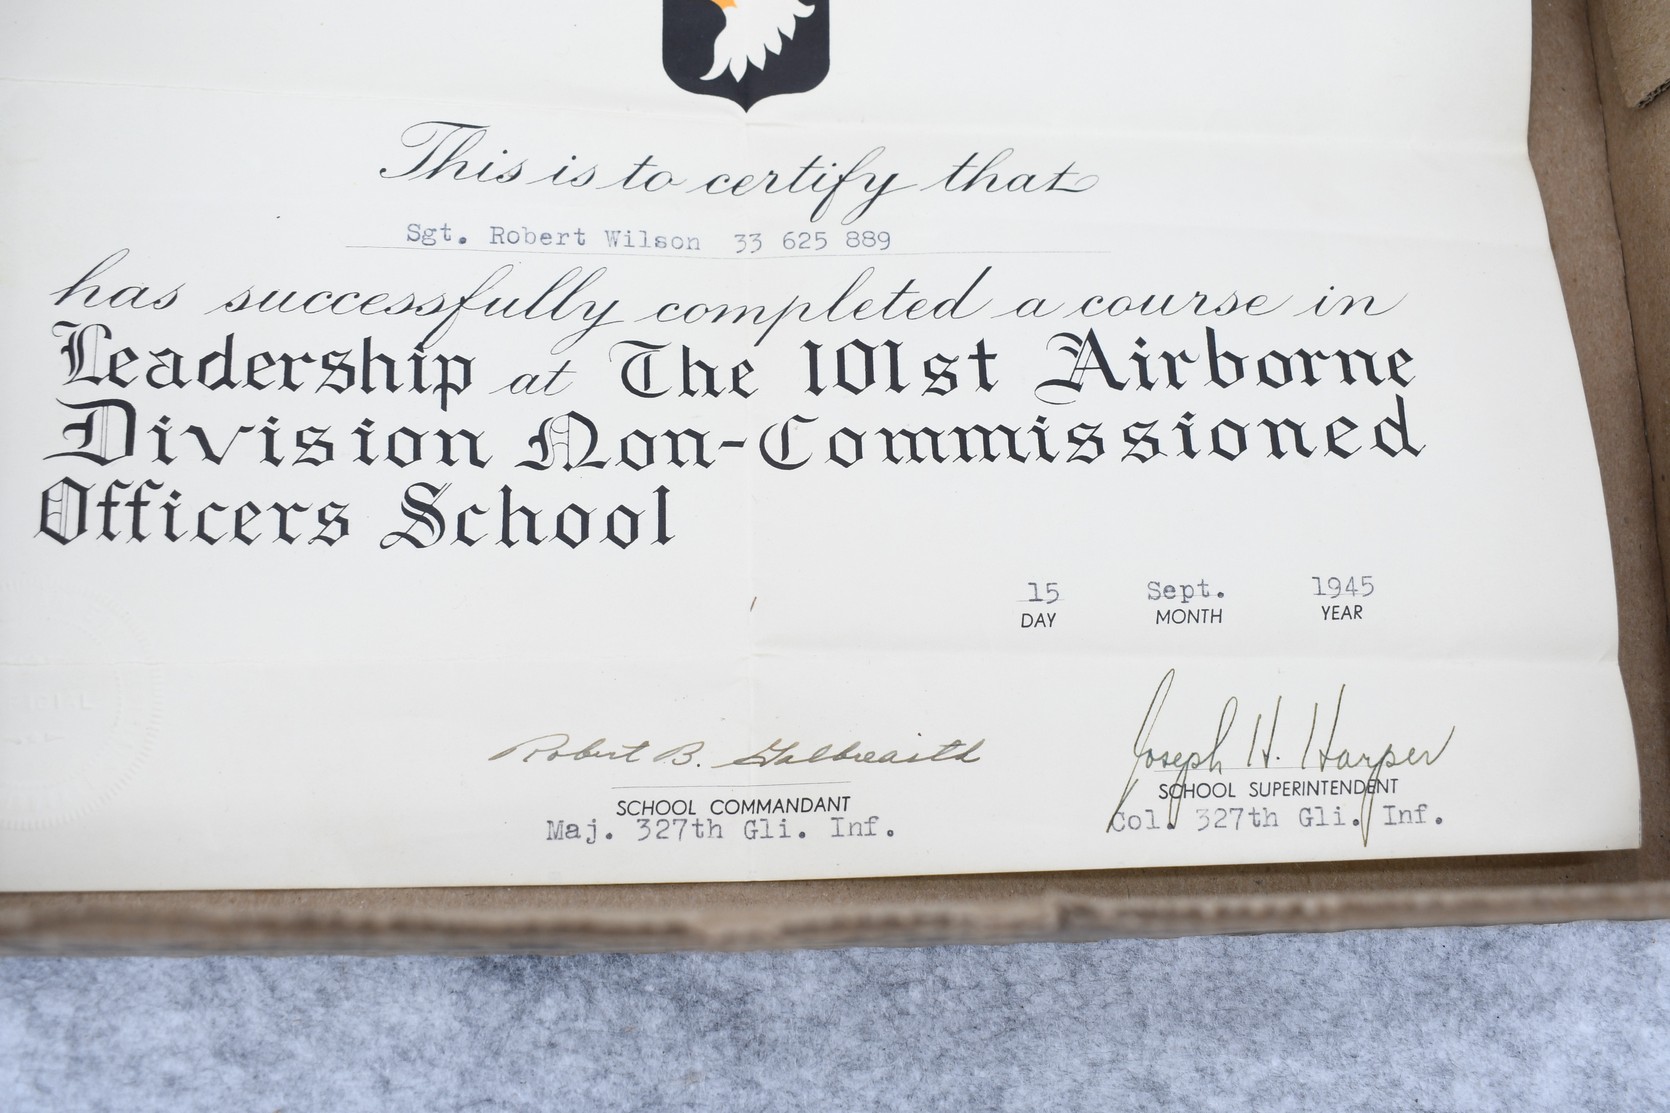 This is to certify that
Sgt. Robert Wilson 33 625 889
has successfully completed a course in
Leadership at The 101st Airborne
Division Non-Commissioned
Officers School
15 Sept. 1945
DAY MONTH YEAR
Robert B. Galbreaith Joseph H. Harper
SCHOOL COMMANDANT SCHOOL SUPERINTENDENT
Maj. 327th Gli. Inf. Col. 327th Gli. Inf.